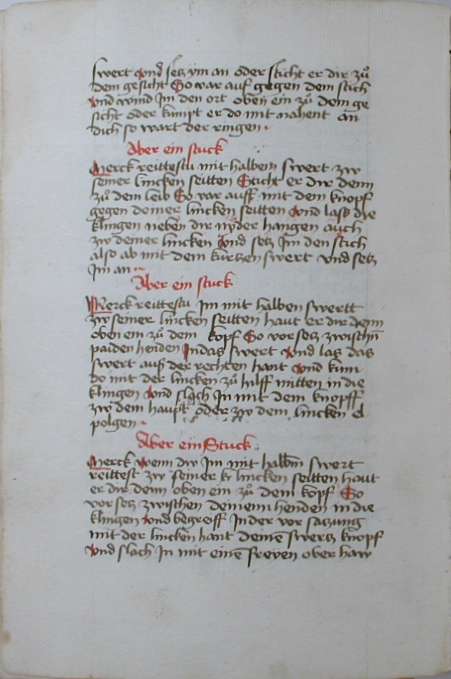 swert vnd setz ym an oder sticht er dir zů
dem gesicht So var auf gegen dem stich
vnd wind Im den ort oben ein zů dem ge
sicht oder kumpt er do mit nahent an
dich so wart der ringen
Aber ein stuck
Merck reittestu mit halbem swert zw
seiner lincken seitten Sticht er dir denn
zů dem leib So var auff mit dem knopf
gegen deiner lincken seitten vnd lass die
klingen neben dir nyder hangen auch
zw deiner lincken vnd setz Im den stich
also ab mit dem kurtzen swert vnd setz
Im an
Aber ein stuck
Merck reittestu Im mit halben swertt
zw seiner lincken seitten haut er dir denn
oben ein zů dem kopf So vor setz zwischn
paiden henden In das swert vnd las das
swert aus der rechten hant vnd kum
do mit der lincken zů hilff mitten in die
klingen vnd slach In mit dem knopff
zw dem haupt oder zw dem lincken el
polgen
Aber ein Stuck
Merck wenn dw Im mit halbm swert
reittest zw seiner lincken seitten haut
er dir denn oben ein zů dem kopf So
vor setz zwischen deinenn henden in die
klingen vnd begreiff In der vor satzung
mit der lincken hant deines swertz knopf
vnd slach In mit einem freyen ober haw